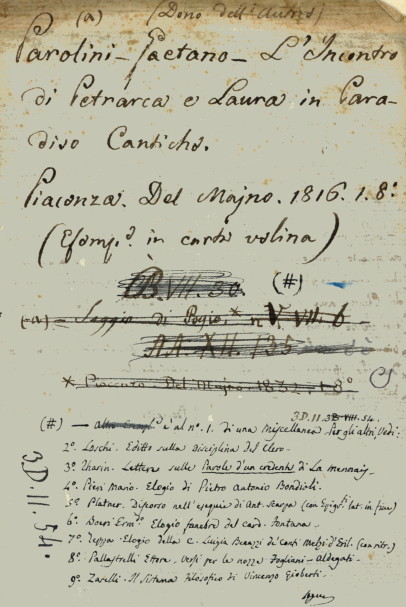 (a) (Dono dell'Autore)
Parolini - Gaetano - L'Incontro
di Petrarca e Laura in Para-
diso Cantiche.
Piacenza. Del Majno. 1816. 1. 8°
(Esemp.e in carta velina)
B. VII. 30. (#)
(a) - Saggio di Poesie * n V. VII. 6
AA. XII. 135
* Piacenza Del Majno. 1832. 1. 8°
3.D.11.
(#) - è al n°. 1. di una miscellanea. Per gli altri, Vedi:
2°. Loschi. Editto sulla disciplina del Clero.
3°. Lettera sulle Parole d'un credente di La mennais
4°. Pieri Mario. Elogio di Pietro Antonio Bondioli.
5°. Platner. Discorso nell'esequie di Ant. Scarpa (con Epigr. lat. in fine)
6°. Elogio funebre del card. Fontana.
7°. Zappa. Elogio della C. Luigia d'Eril. (con ritr.)
8°. Pallastrelli Ettore. Versi per le nozze Fogliani - Aldegati.
9°. Zarelli. Il Sistema filosofico di Vincenzo Gioberti.
3.D.11.54.